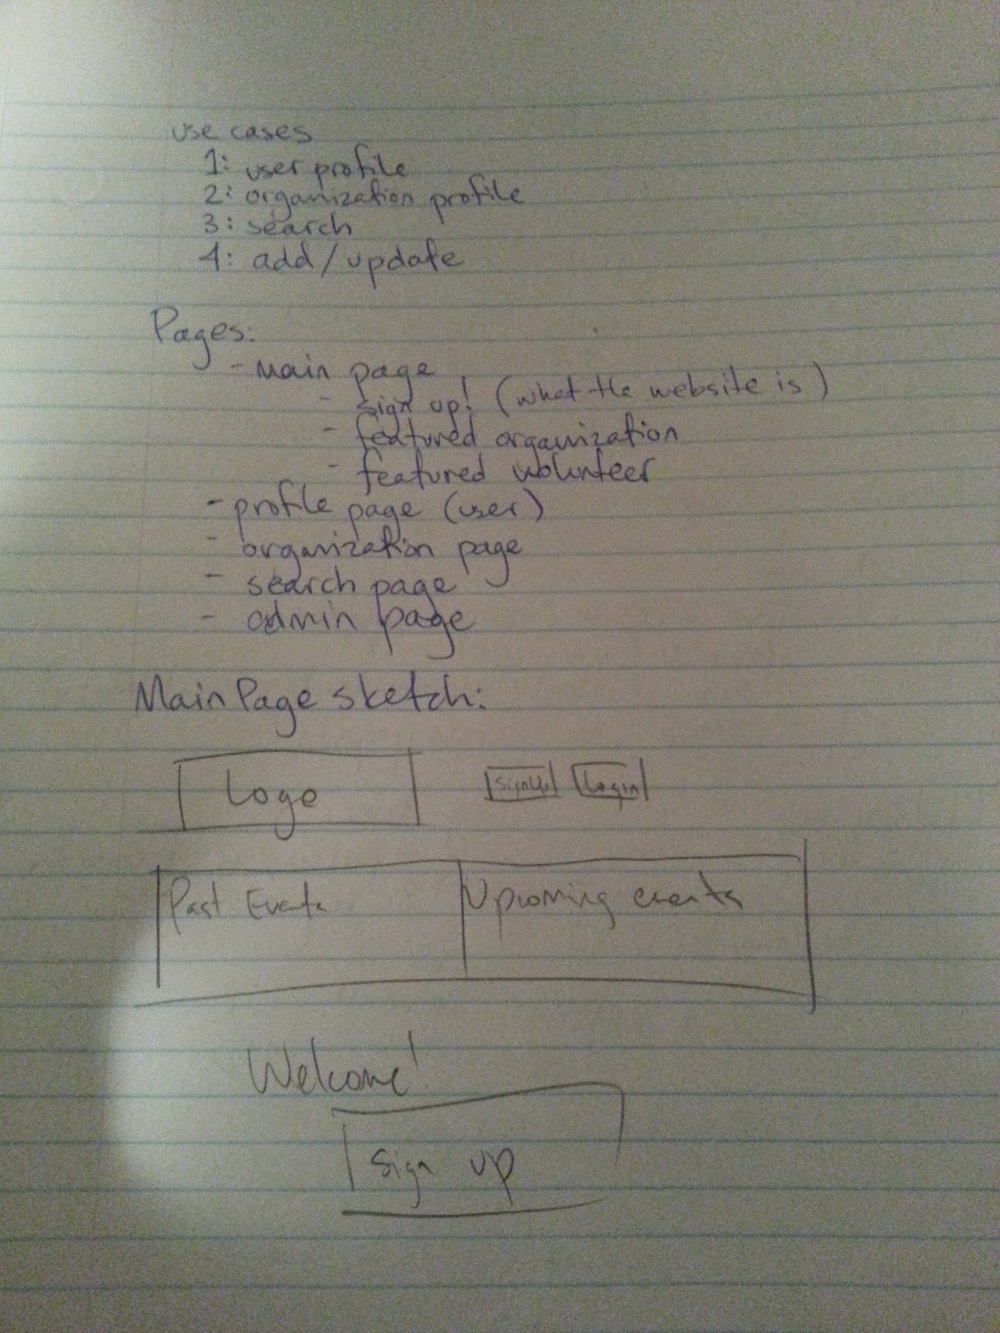 use cases
1: user profile
2: organization profile
3: search
4: add/update
Pages:
- Main page
- sign up! (what the website is)
- featured organization
- featured volunteer
- profile page (user)
- organization page
- search page
- admin page
Main Page sketch:
Logo
SignUp Login
Past Events Upcoming events
Welcome!
Sign up